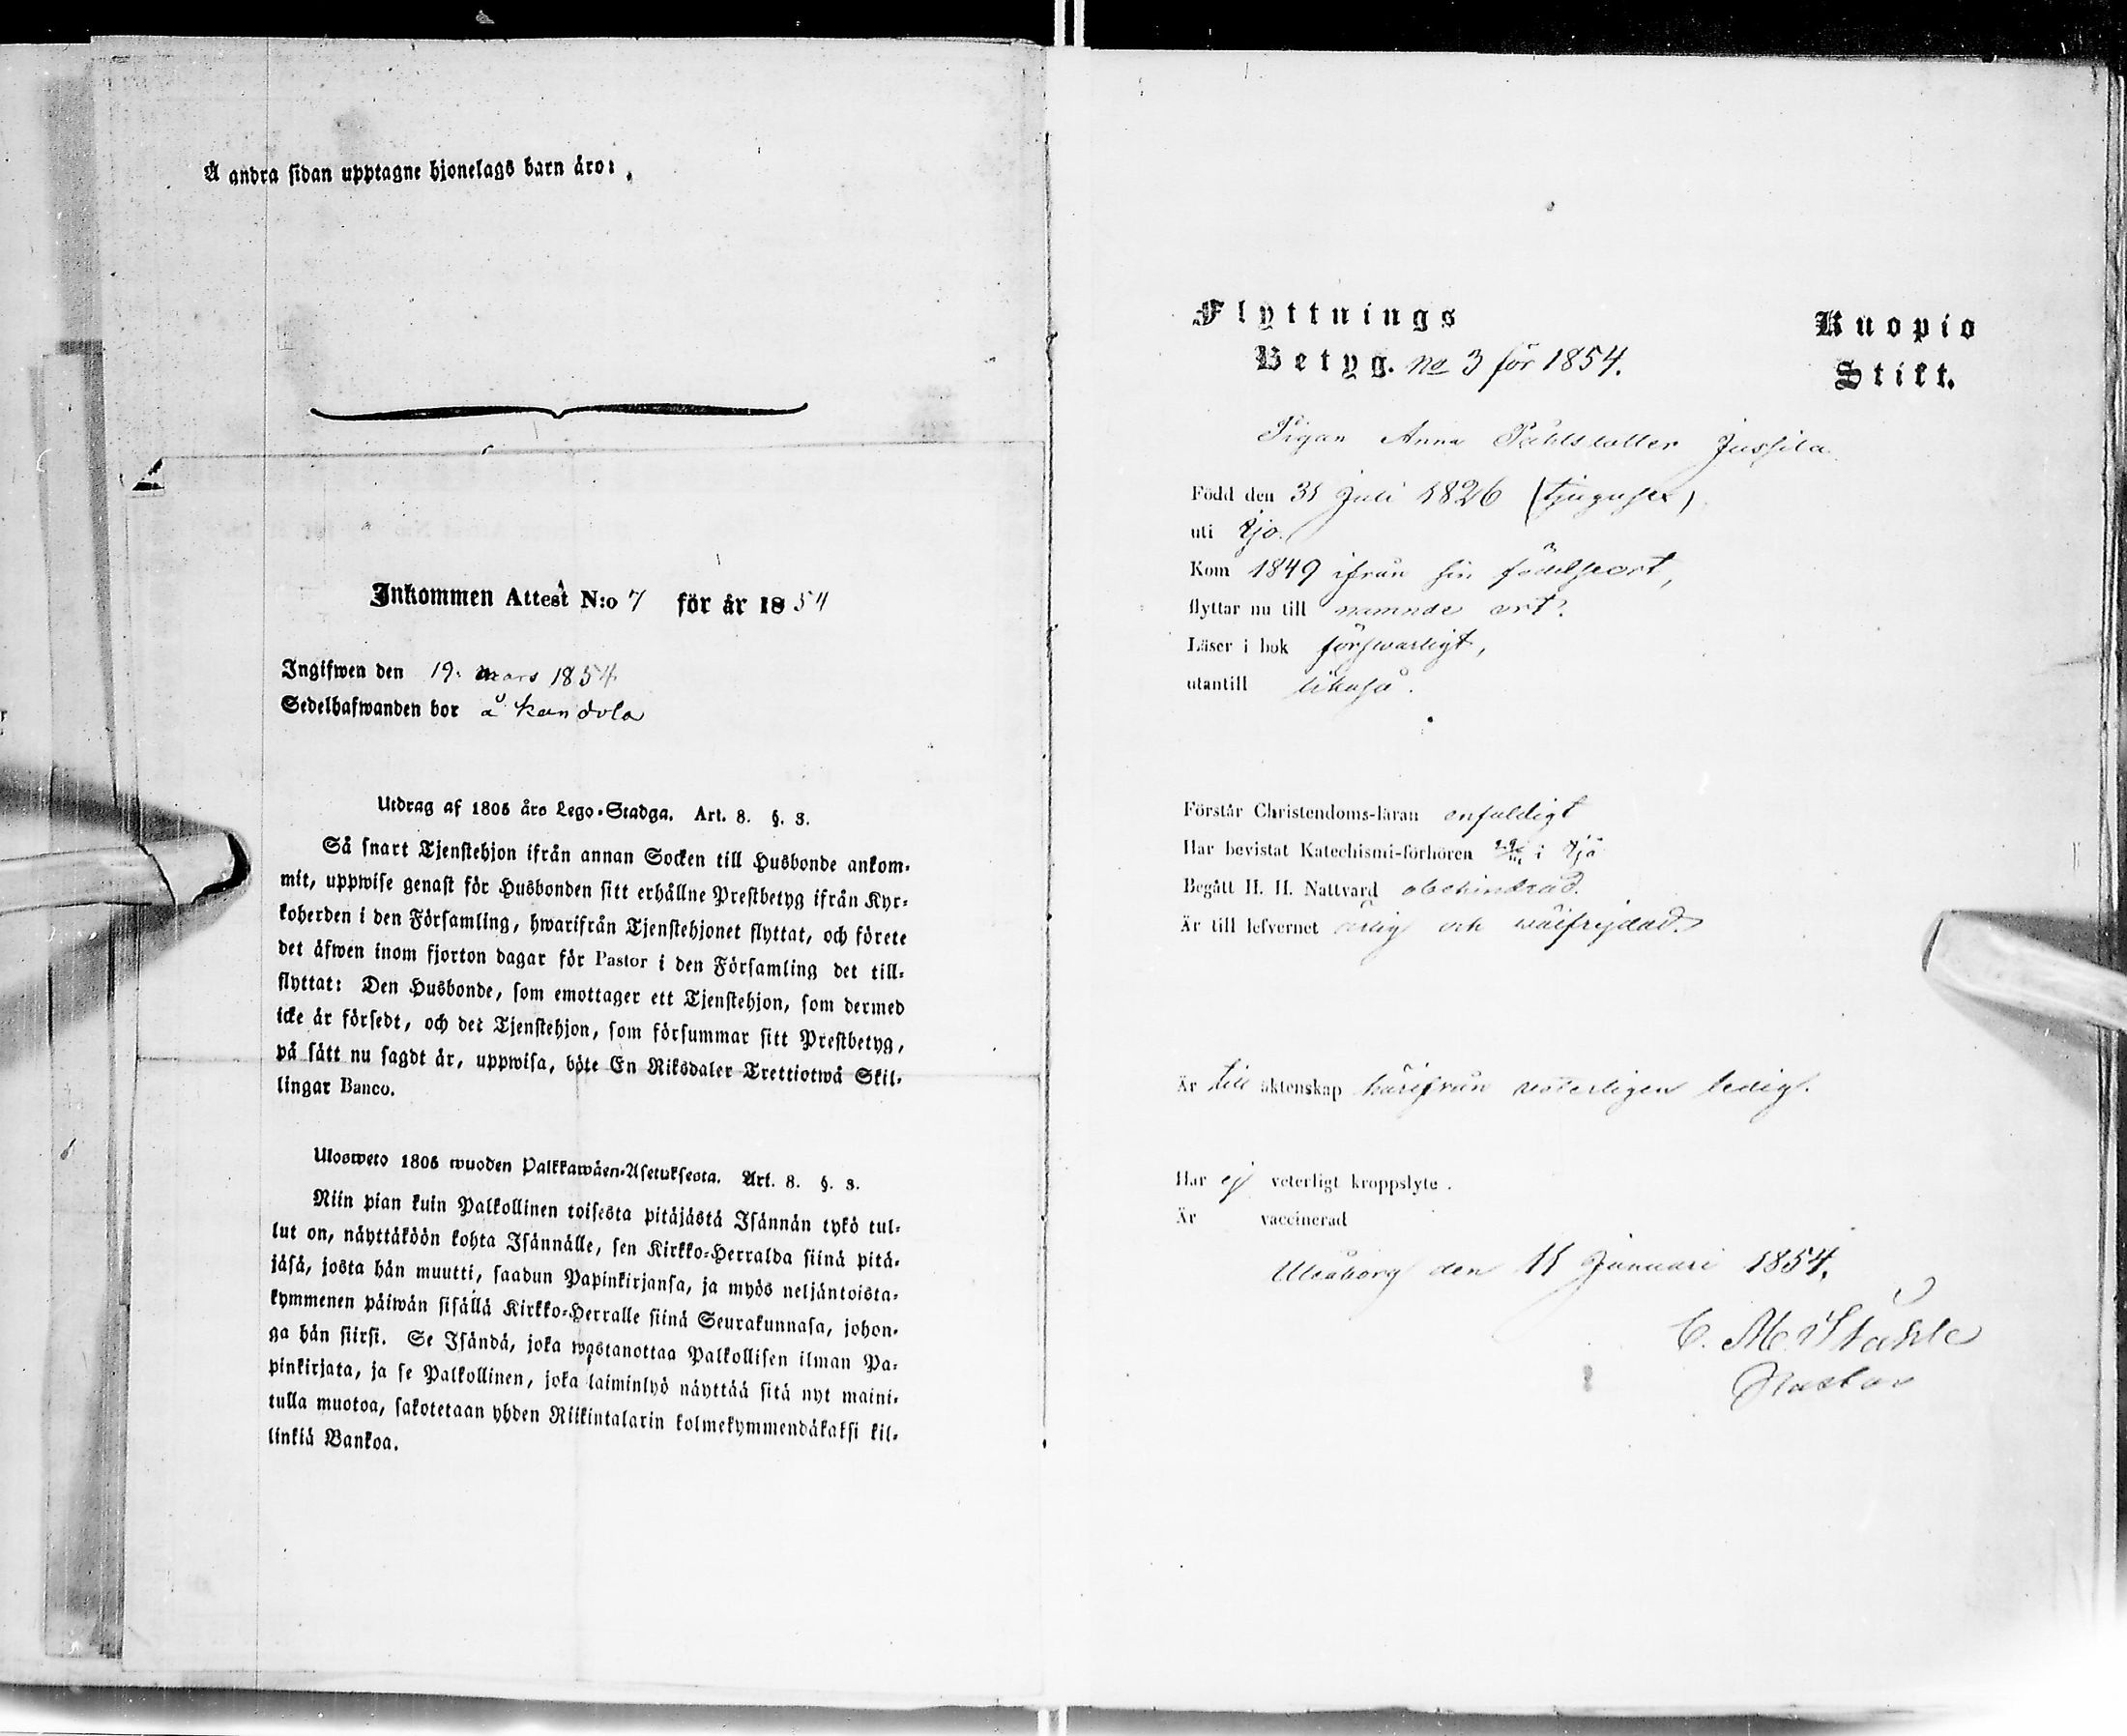 Å andra sidan upptagne hjonelags barn äro:
Inkommen Attest N:o 7 för år 1854
Ingifwen den 19. mars 1854
Sedelhafwanden bor å kandola
Utdrag af 1805 års Lego-Stadga. Art. 8. §. 3.
Så snart Tjenstehjon ifrån annan Socken till Husbonde ankom-
mit, uppwise genast för Husbonden sitt erhållne Prestbetyg ifrån Kyr-
koherden i den Församling, hwarifrån Tjenstehjonet flyttat, och förete
det äfwen inom fjorton dagar för Pastor i den Församling det till-
flyttat: Den Husbonde, som emottager ett Tjenstehjon, som dermed
icke är försedt, och det Tjenstehjon, som försummar sitt Prestbetyg,
på sätt nu sagdt är, uppwisa, böte En Riksdaler Trettiotwå Skil-
lingar Banco.
Ulosweto 1805 wuoden Palkkawäen-Asetuksesta. Art. 8. §. 3.
Niin pian kuin Palkollinen toisesta pitäjästä Isännän tykö tul-
lut on, näyttäköön kohta Isännälle, sen Kirkko-Herralda siinä pitä-
jäsä, josta hän muutti, saadun Papinkirjansa, ja myös neljäntoista-
kymmenen päiwän sisällä Kirkko-Herralle siinä Seurakunnasa, johon-
ga hän siirsi. Se Isändä, joka wastanottaa Palkollisen ilman Pa-
pinkirjata, ja se Palkollinen, joka laiminlyö näyttää sitä nyt maini-
tulla muotoa, sakotetaan yhden Riikintalarin kolmekymmendäkaksi kil-
linkiä Bankoa.
Flyttnings
Betyg. No 3 för 1854.
Kuopio
Stift.
Pigan Anna Påhlsdotter Jussila
Född den 31 Juli 1826 (tjugusex)
uti Ijo.
Kom 1849 ifrån sin födelseort,
flyttar nu till nämnde ort.
Läser i bok försvarligt,
utantill likaså.
Förstår Christendoms-läran enfaldigt
Har bevistat Katechismi-förhören i Ijo
Begått H. H. Nattvard obehindrad.
Är till lefvernet ärlig och wälfrejdad.
Är till äktenskap härifrån veterligen ledig.
Har ej veterligt kroppslyte.
Är vaccinerad
Uleåborg den 11 Januari 1854.
C. M. Ståhle
Pastor